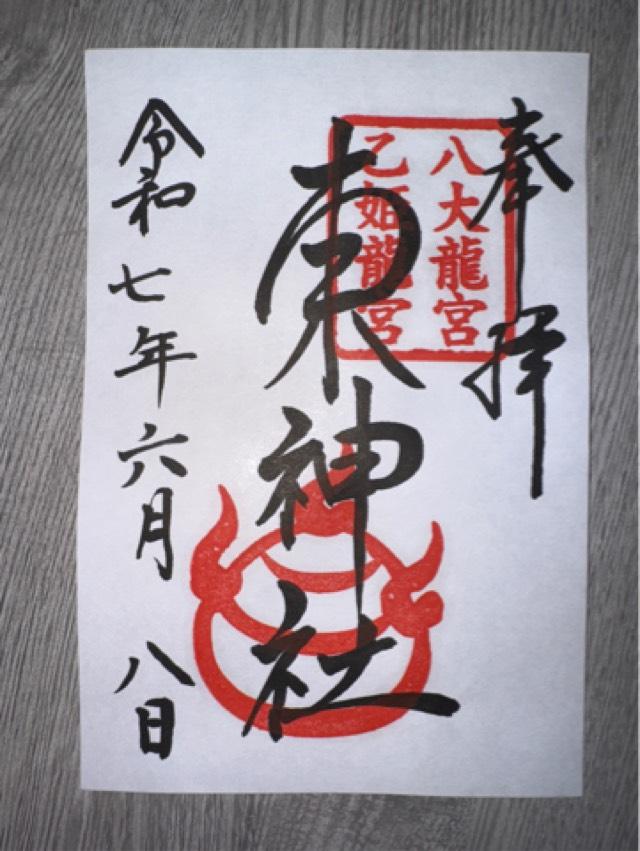 奉拝
八大龍宮
乙姫龍宮
東神社
令和七年六月八日